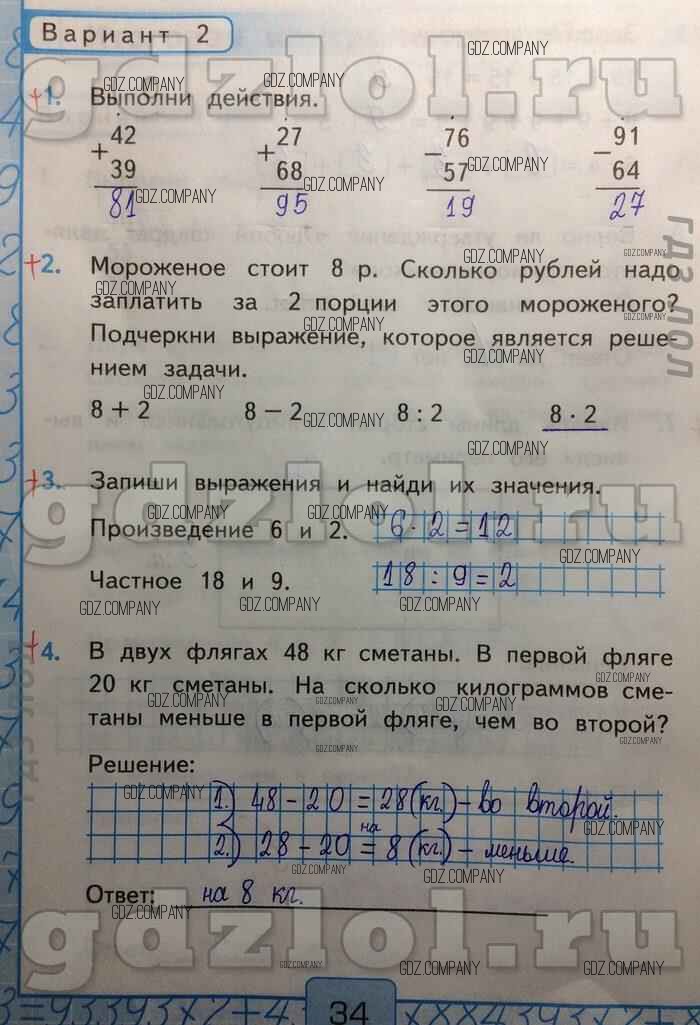 Вариант 2
1. Выполни действия.
+ 42 + 27 − 76 − 91
39 68 57 64
81 95 19 27
2. Мороженое стоит 8 р. Сколько рублей надо
заплатить за 2 порции этого мороженого?
Подчеркни выражение, которое является реше-
нием задачи.
8 + 2 8 − 2 8 : 2 8 · 2
3. Запиши выражения и найди их значения.
Произведение 6 и 2. 6 · 2 = 12
Частное 18 и 9. 18 : 9 = 2
4. В двух флягах 48 кг сметаны. В первой фляге
20 кг сметаны. На сколько килограммов сме-
таны меньше в первой фляге, чем во второй?
Решение:
1.) 48 − 20 = 28 (кг.) − во второй.
2.) 28 − 20 = на 8 (кг.) − меньше.
Ответ: на 8 кг.
34
gdzlol.ru
GDZ.COMPANY
гдз лол